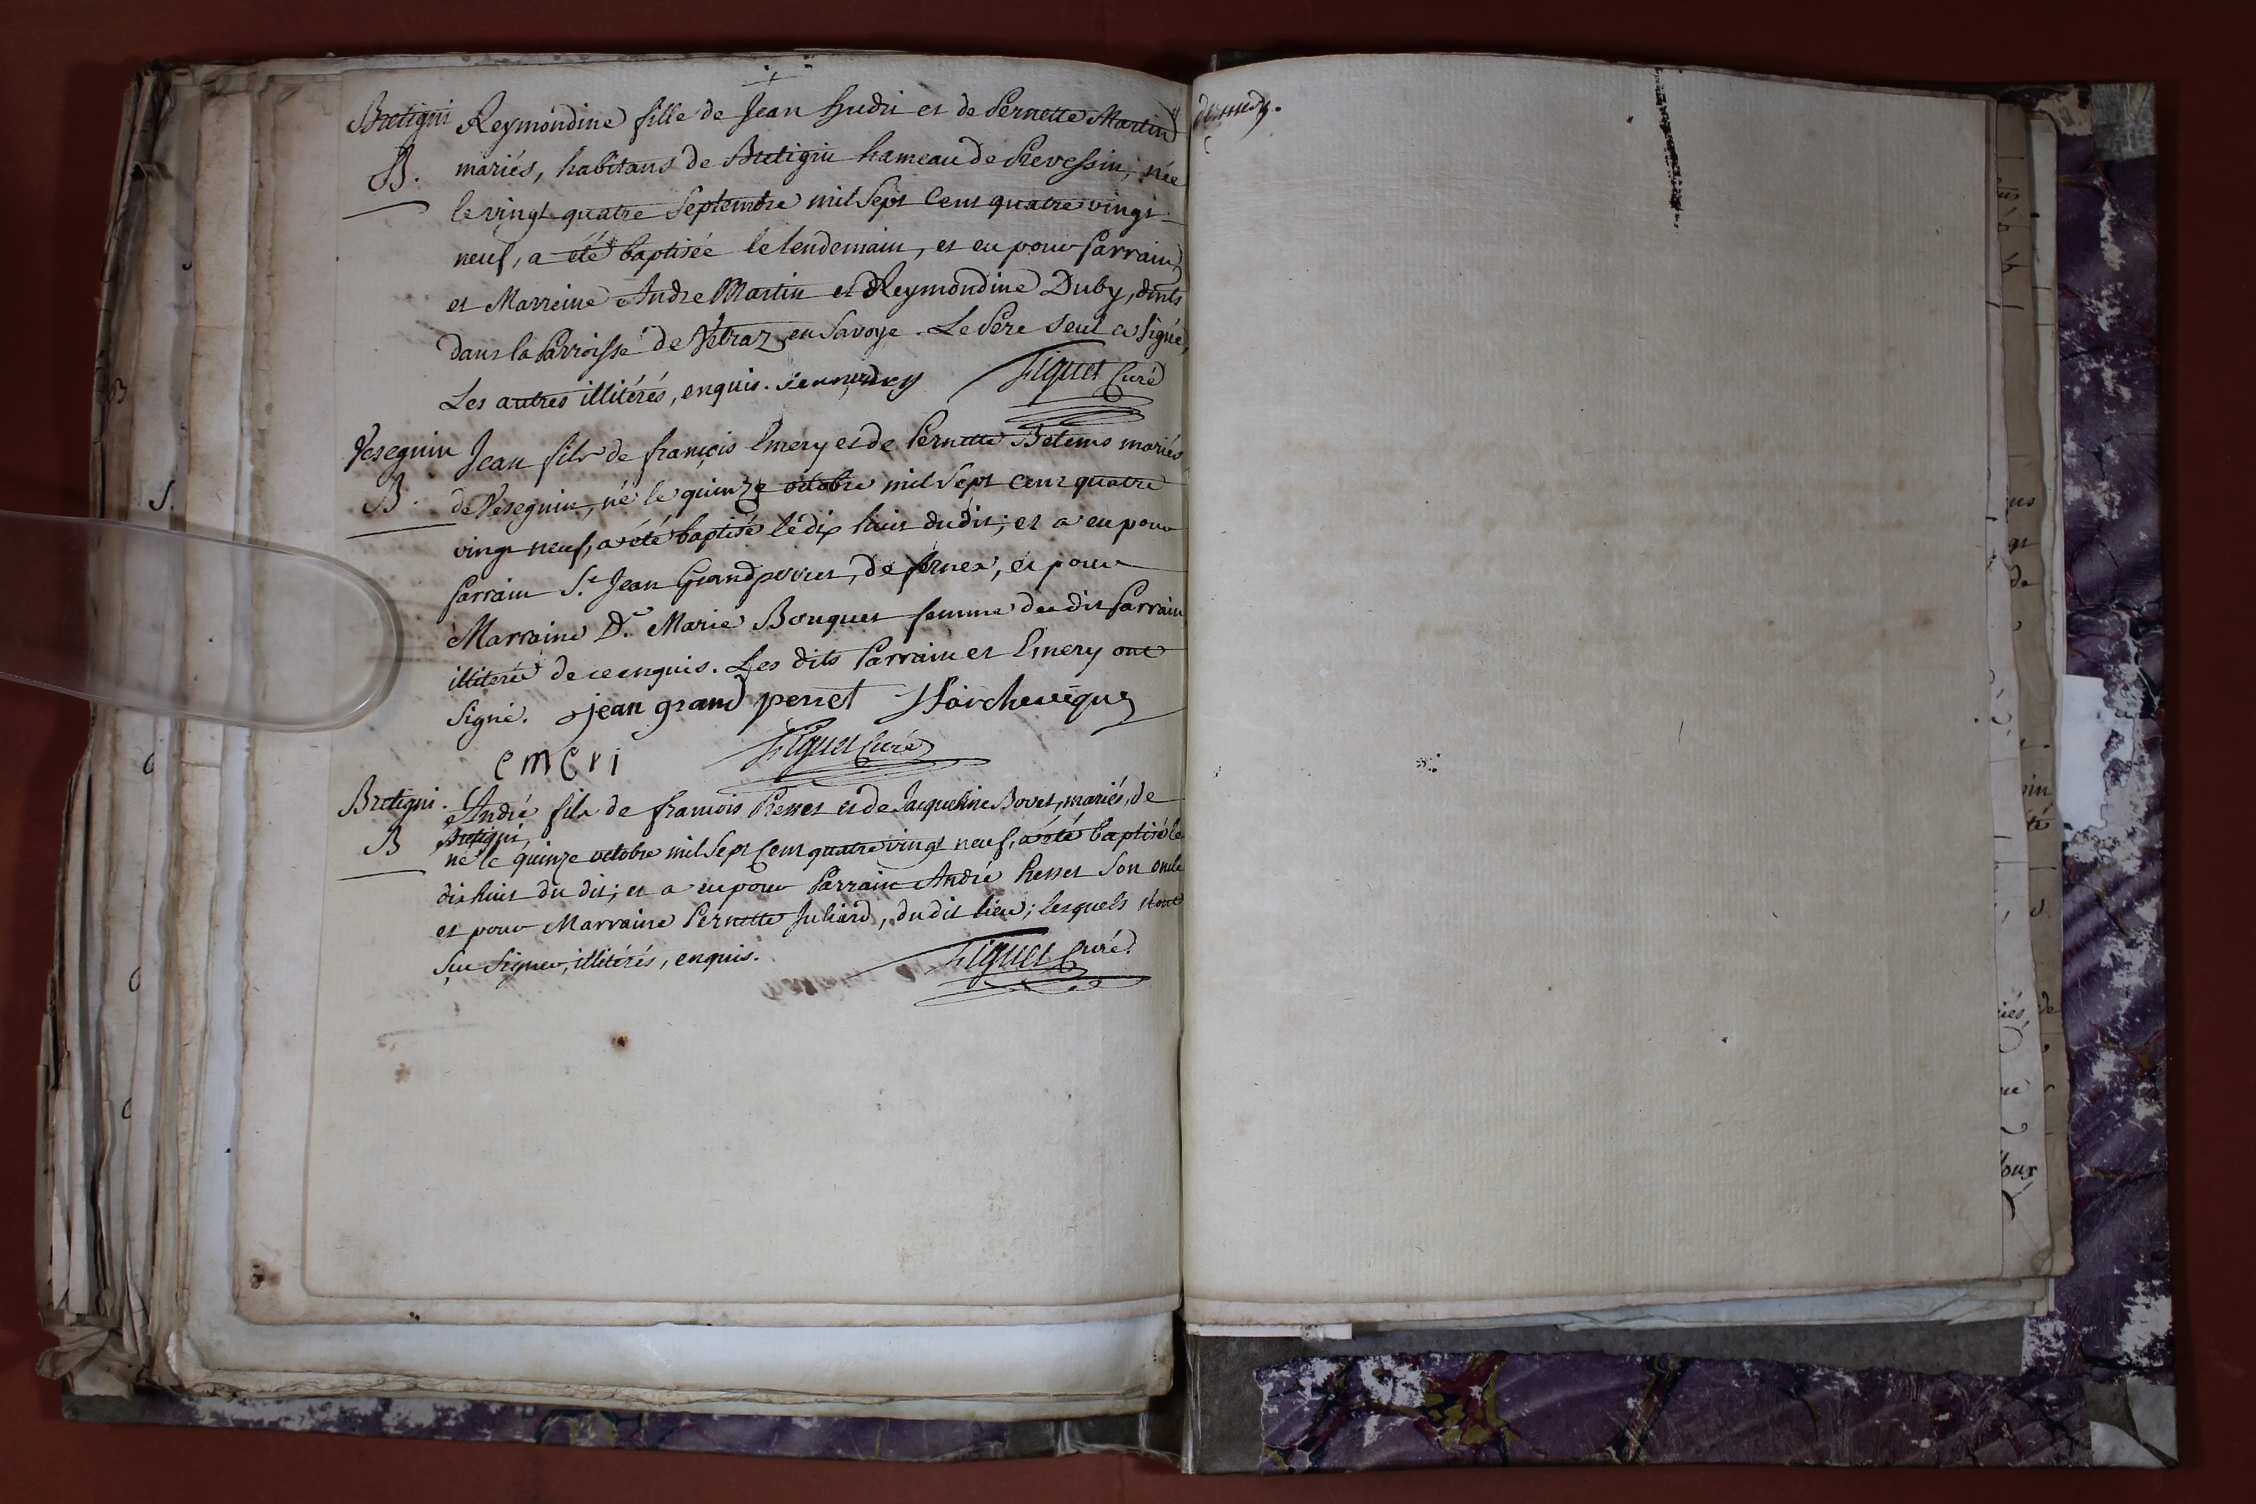 Bretigni Reymondine fille de Jean hudri et de Pernette Martin
B. mariés, habitans de Bretigni hameau de Prevessin, née
le vingt quatre Septembre mil Sept Cent quatre vingt
neuf, a été baptisée le lendemain, et eu pour Parrain
et Marreine Andre Martin et Reymondine Duby,
dans la Parroisse de Vetraz en Savoye. Le Pere seul a signé,
Les autres illitérés, enquis. Fiquet Curé
Veseguin Jean fils de françois Emery et de Pernette Betems mariés
B. de Veseguin, né le quinze octobre mil Sept cent quatre
vingt neuf, a été baptisé le dix huit du dit; et a eu pour
Parrain Sr. Jean Grandperret, de fernex, et pour
Marraine De. Marie Bouquet femme du dit Parrain
illiterée de ce enquis. Les dits Parrain et Emery ont
signé. jean grand perret
emeri Fiquet Curé
Bretigni. André fils de francois Perret et de Jacqueline Bovet, mariés, de
Bretigni,
B né le quinze octobre mil Sept Cent quatre vingt neuf, a été baptisé le
dix huit du dit; et a eu pour Parrain André Perret Son oncle
et pour Marraine Pernette Juliard, du dit lieu; lesquels n'ont
sçu signer, illitérés, enquis. Fiquet Curé.